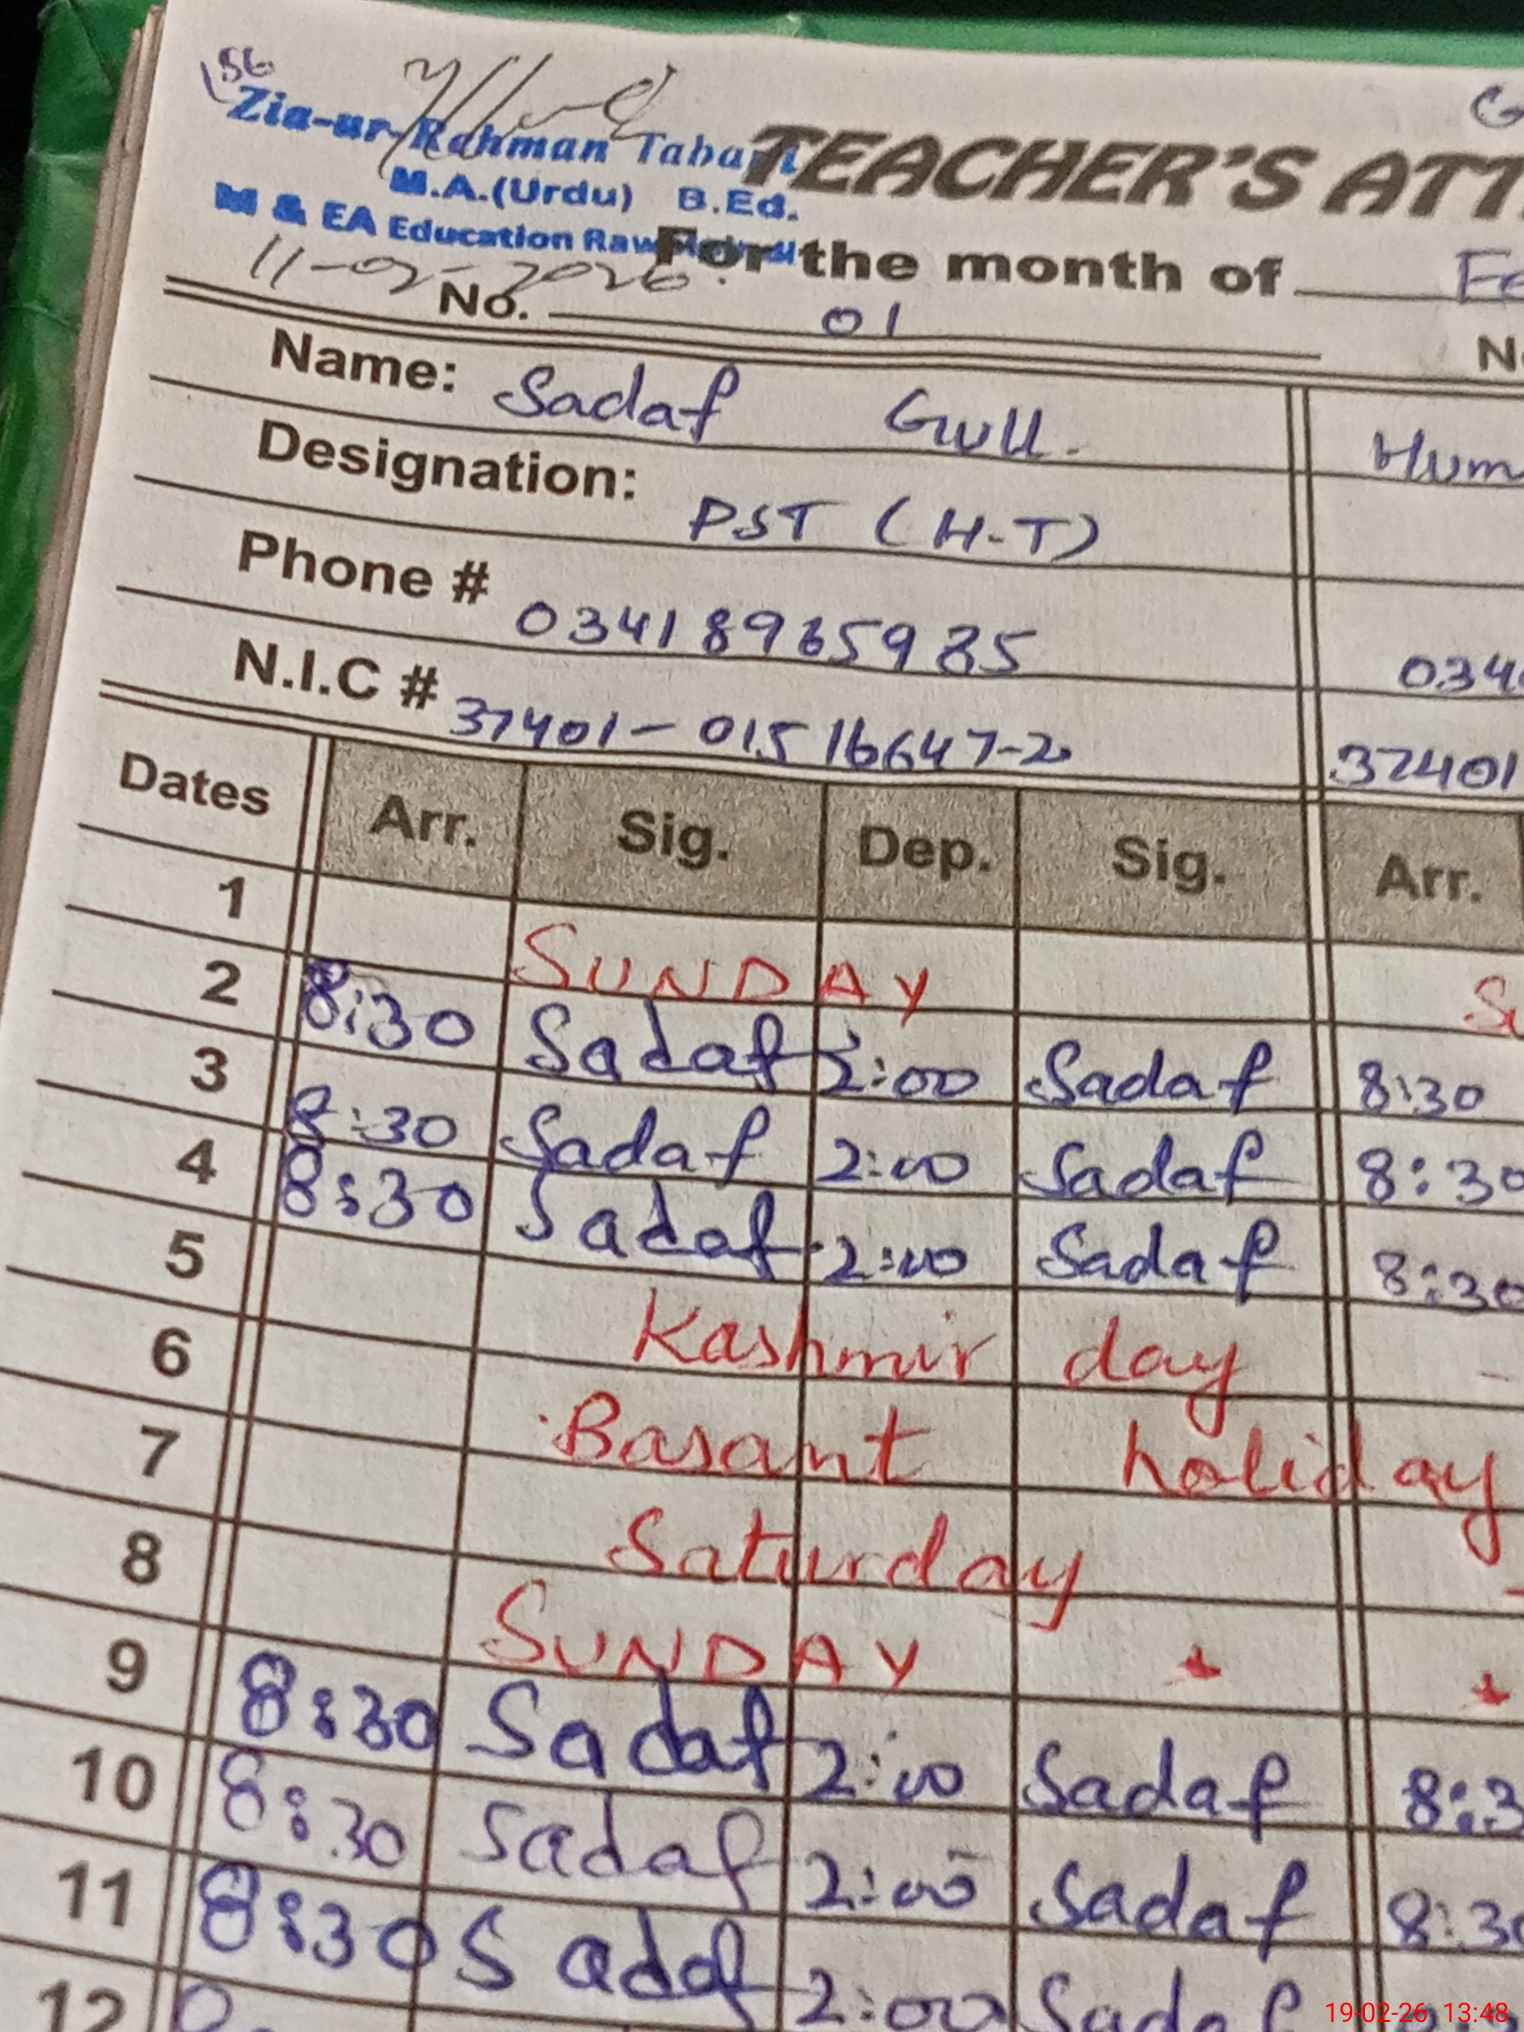 56
Zia-ur-Rahman
M.A.(Urdu) B.Ed.
M & EA Education
TEACHER'S ATT
For the month of Fe
11-02-2026.
No. 01
Name: Sadaf Gull. Hum
Designation: PST (H-T)
Phone # 03418965985 034
N.I.C # 37401-01516647-2 37401
Dates Arr. Sig. Dep. Sig. Arr.
1 SUNDAY S
2 8:30 Sadaf 2:00 Sadaf 8:30
3 8:30 Sadaf 2:00 Sadaf 8:30
4 8:30 Sadaf 2:00 Sadaf 8:30
5 Kashmir day
6 Basant holiday
7 Saturday
8 SUNDAY
9 8:30 Sadaf 2:00 Sadaf 8:3
10 8:30 Sadaf 2:00 Sadaf 8:30
11 8:30 Sadaf 2:00 Sadaf
12
19-02-26 13:48